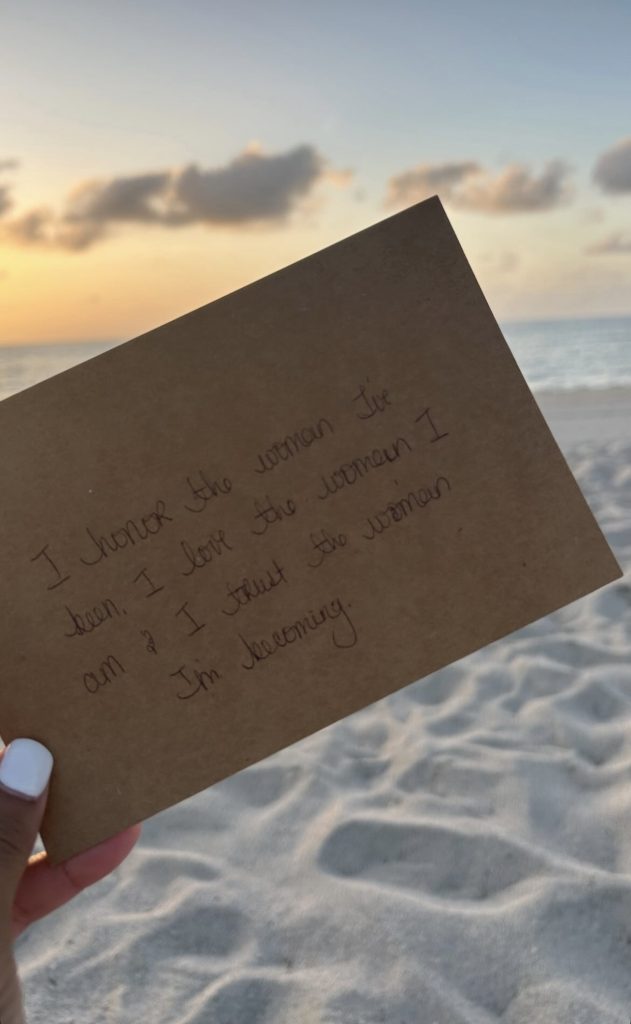 I honor the woman I've
been, I love the woman I
am & I trust the woman
I'm becoming.